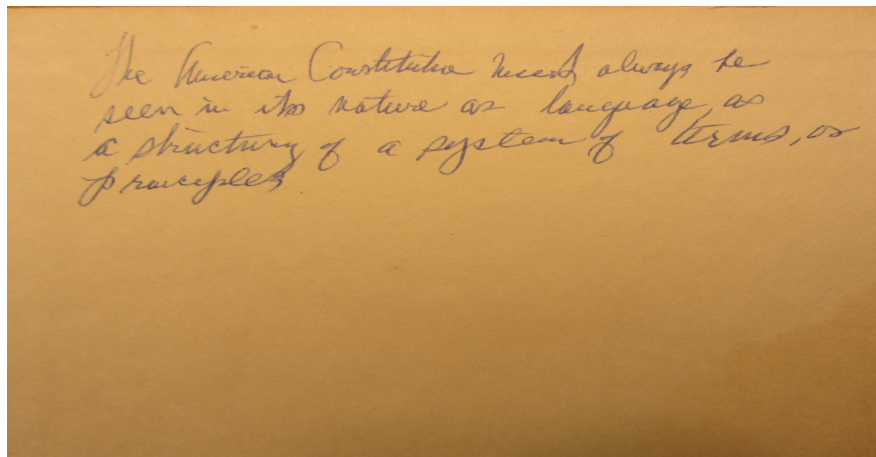 The American Constitution must always be
seen in its nature as language, as
a structury of a system of terms, or
principles